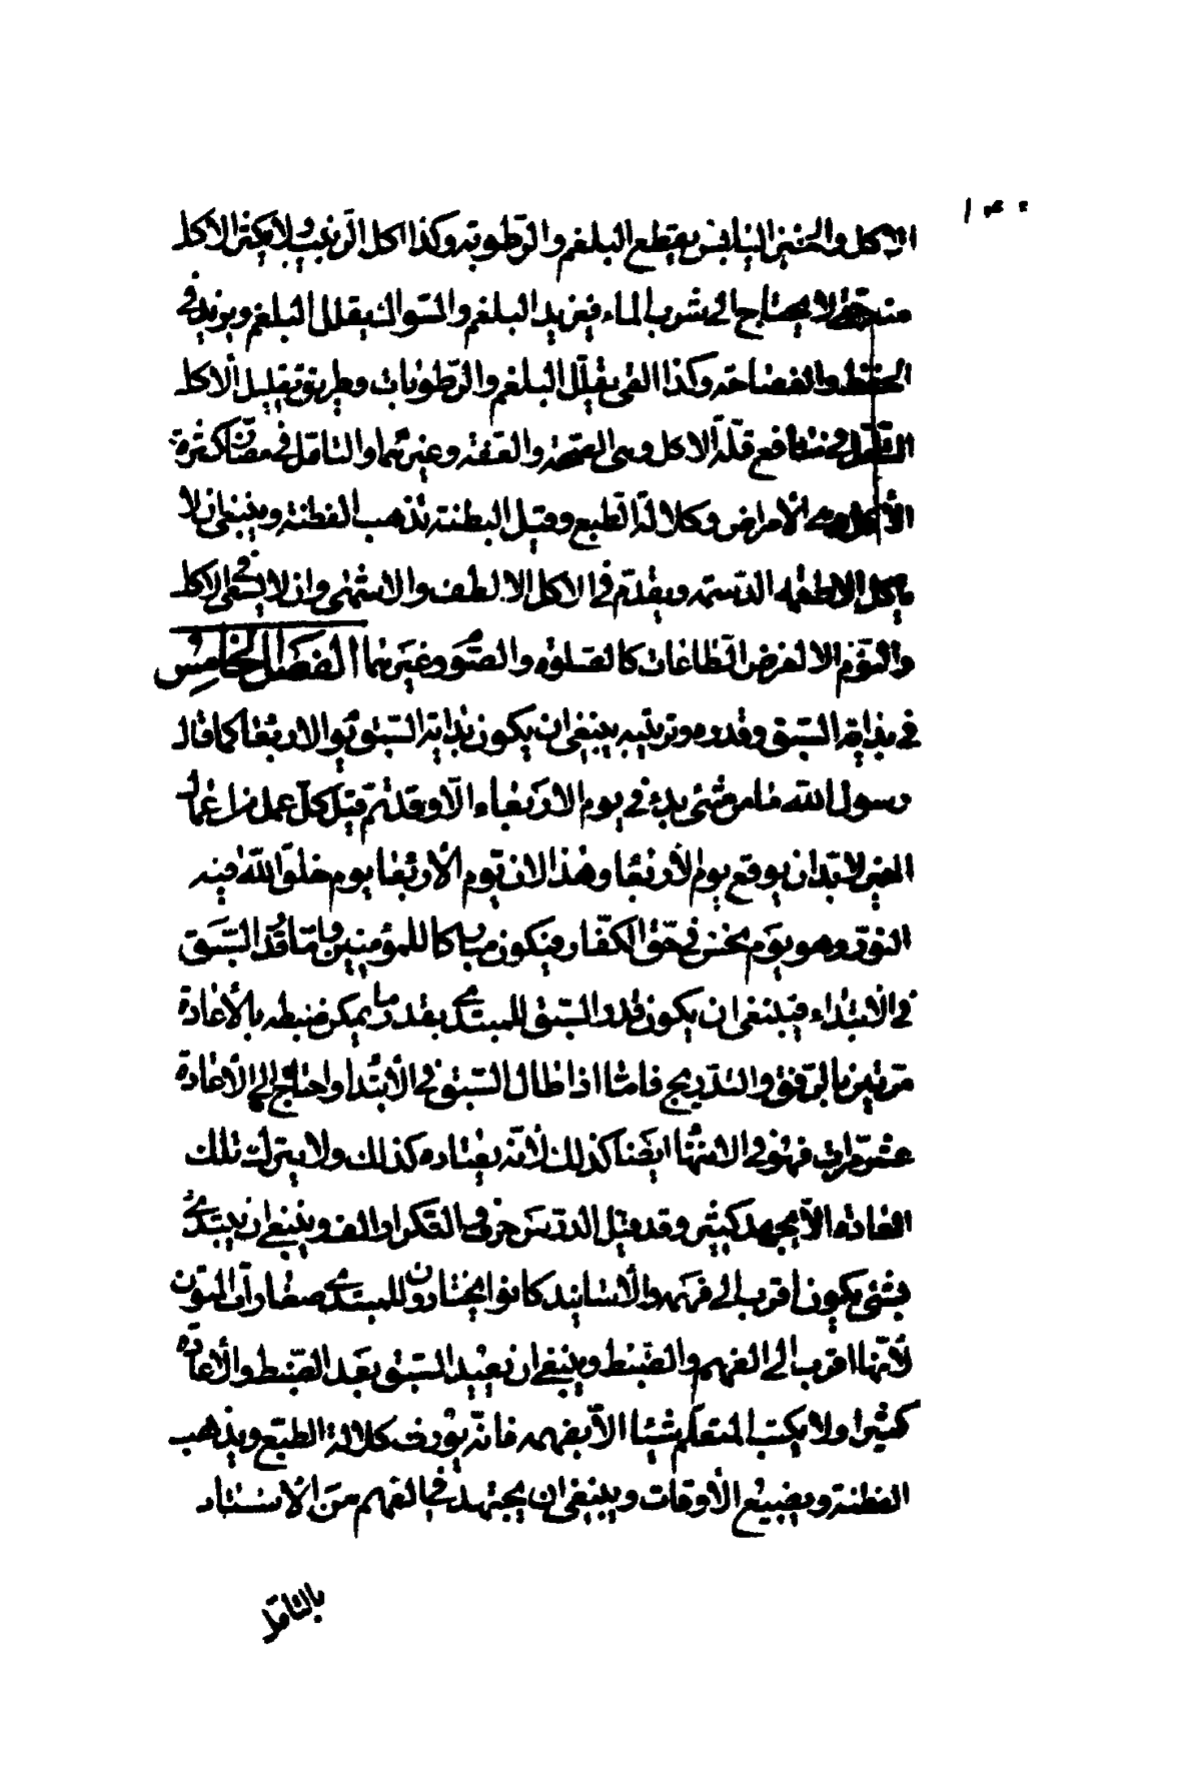 ١٣٠
الاكل والخبز اليابس يقطع البلغم والرّطوبة وكذا اكل الزبيب ولا يكثر الاكل
منه حتّى لا يحتاج الى شرب الماء فيزيد البلغم والسّواك يقلل البلغم ويزيد فى
الحفظ والفصاحة وكذا القى يقلّل البلغم والرّطوبات وطريق تقليل الاكل
التأمّل فى منافع قلّة الاكل وهى الصّحة والعفّة وغيرهما والتأمّل فى مضارّ كثرة
الأكل وهى الأمراض وكلالة الطبع وقيل البطنة تذهب الفطنة وينبغى ان لا
ياكل الاطعمة الدّسمة ويقدّم فى الاكل الالطف والاشهى وان لا يكثر فى الاكل
والنّوم الا لغرض الطّاعات كالصّلوة والصّوم وغيرهما الفصل الخامس
فى بداية السّبق وقدره وترتيبه ينبغى ان يكون بداية السّبق يوم الاربعا كما قال
رسول اللّه ما من شئ بدئ فى يوم الاربعاء الّا وقد تمّ قيل كلّ عمل من اعمال
الخير لا بدّ ان يوقع يوم الأربعا وهذا لان يوم الأربعا يوم خلق اللّه فيه
النّور وهو يوم نحس فى حقّ الكفّار فيكون مباركا للمؤمنين وامّا قدر السّبق
فى الابتداء فينبغى ان يكون قدر السّبق للمبتدى بقدر ما يمكن ضبطه بالأعادة
مرّتين بالرّفق والتدّريج فامّا اذا طال السّبق فى الأبتدا واحتاج الى الأعادة
عشر مرّات فهو فى الانتها ايضا كذلك لأنّه يعتاده كذلك ولا يترك تلك
العادة الّا بجهد كثير وقد قيل الدرس حرف والتكرار الف وينبغى ان يبتدى
بشئ يكون اقرب الى فهمه والأساتيد كانوا يختارون للمبتدى صغارات المتون
لأنّها اقرب الى الفهم والضّبط وينبغى ان يعيد السّبق بعد الضّبط والأعادة
كثيرا ولا يكتب المتعلّم شيئا الّا بفهمه فانّه يورث كلالة الطبّع ويذهب
الفطنة ويضييع الأوقات وينبغى ان يجتهد فى الفهم من الأستاد
بالتامّل